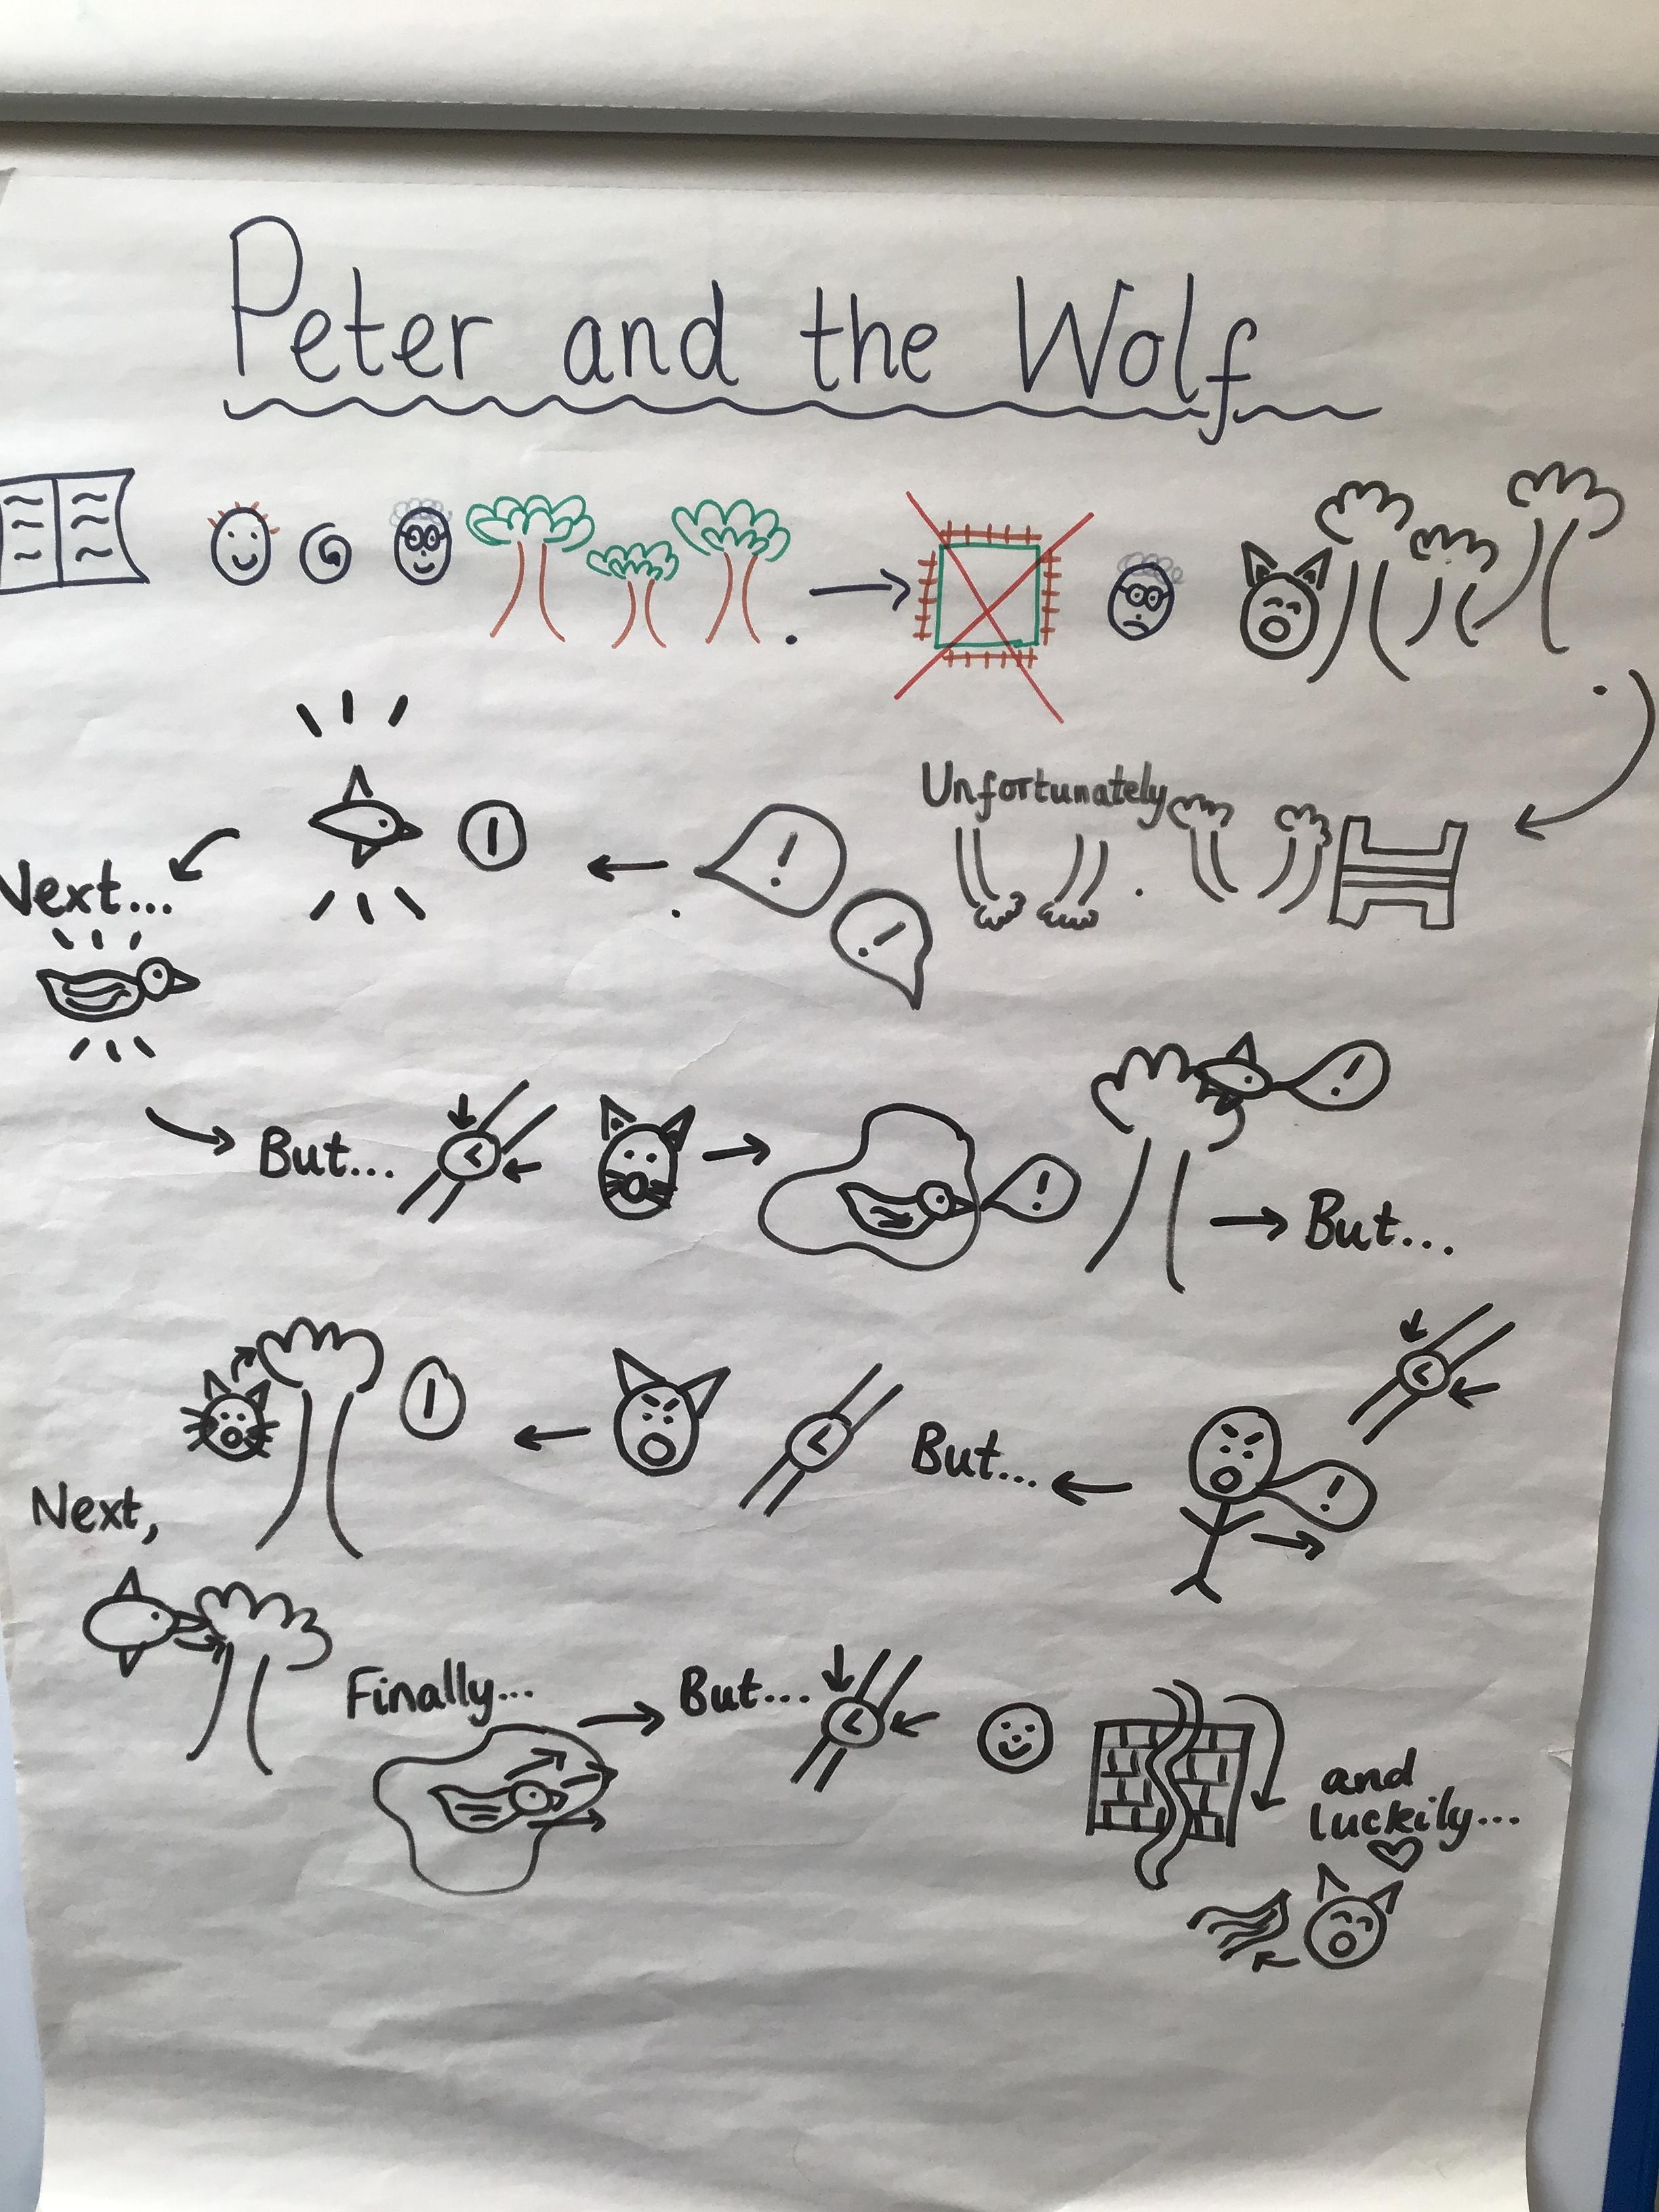 Peter and the Wolf
Unfortunately
!
!
1
Next...
But...
!
!
But...
!
But...
1
Next,
Finally...
But...
and
luckily...